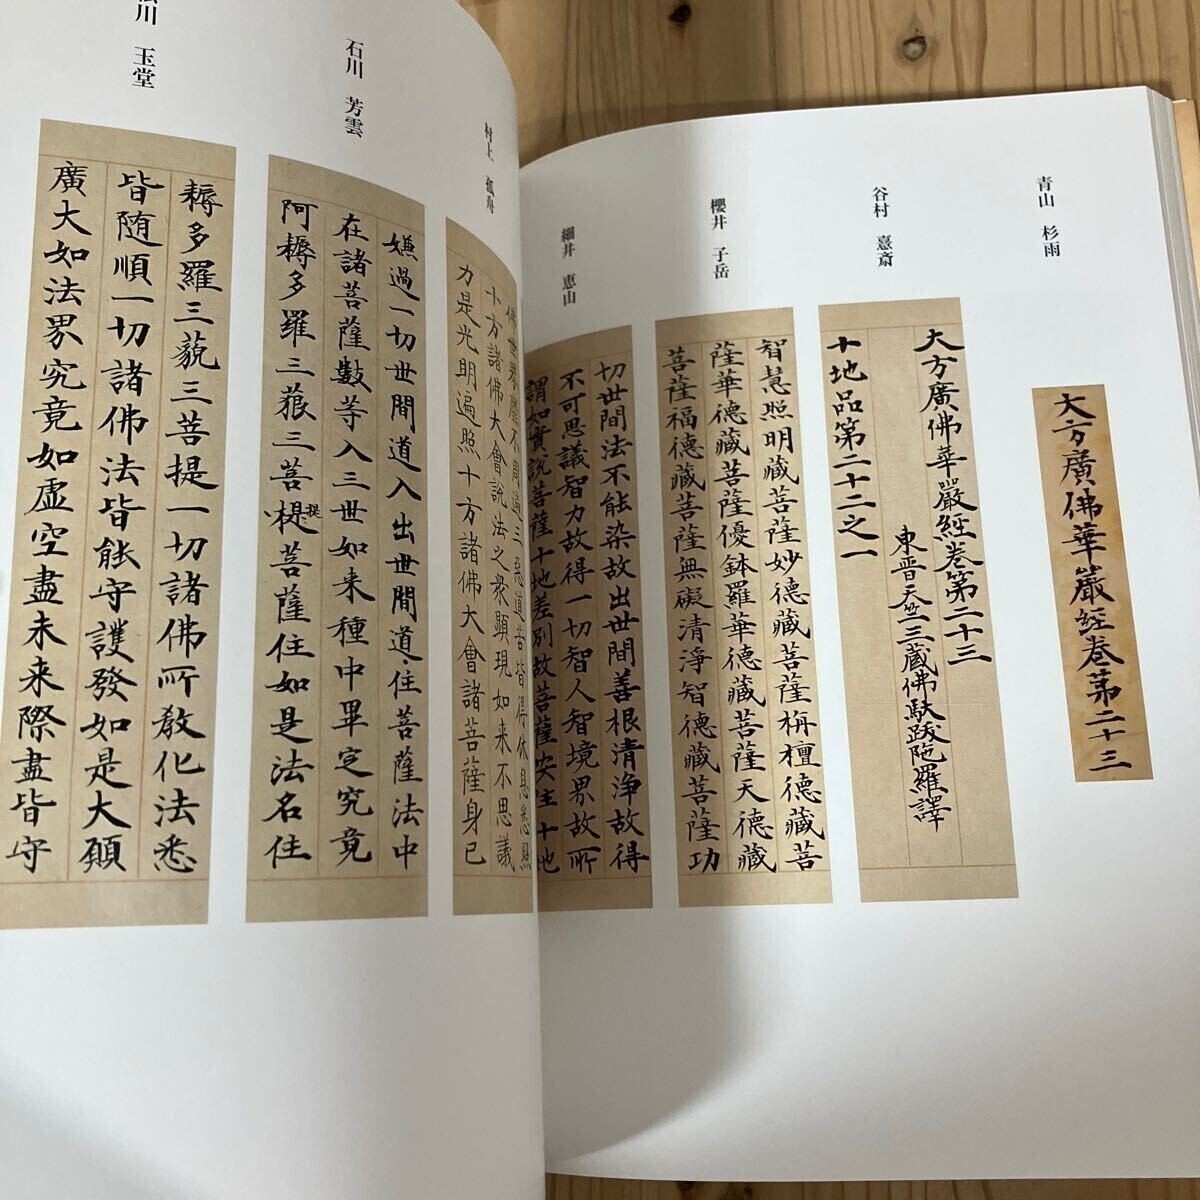 青山 杉雨
大方廣佛華嚴經卷第二十三
谷村 憙斎
大方廣佛華嚴經卷第二十三
東晉天竺三藏佛馱跋陀羅譯
十地品第二十二之一
櫻井 子岳
智慧照明藏菩薩妙德藏菩薩栴檀德藏菩
薩華德藏菩薩優鉢羅華德藏菩薩天德藏
菩薩福德藏菩薩無礙清淨智德藏菩薩功
細井 恵山
切世間法不能染故出世間善根清淨故得
不可思議智力故得一切智人智境界故所
謂如實說菩薩十地差別故菩薩安住十地
村上 孤舟
十方諸佛大會說法之衆顯現如来不思議
力是光明遍照十方諸佛大會諸菩薩身已
石川 芳雲
嫌過一切世間道入出世間道住菩薩法中
在諸菩薩數等入三世如来種中畢定究竟
阿耨多羅三藐三菩提菩薩住如是法名住
川 玉堂
耨多羅三藐三菩提一切諸佛所教化法悉
皆随順一切諸佛法皆能守護發如是大願
廣大如法界究竟如虛空盡未来際盡皆守